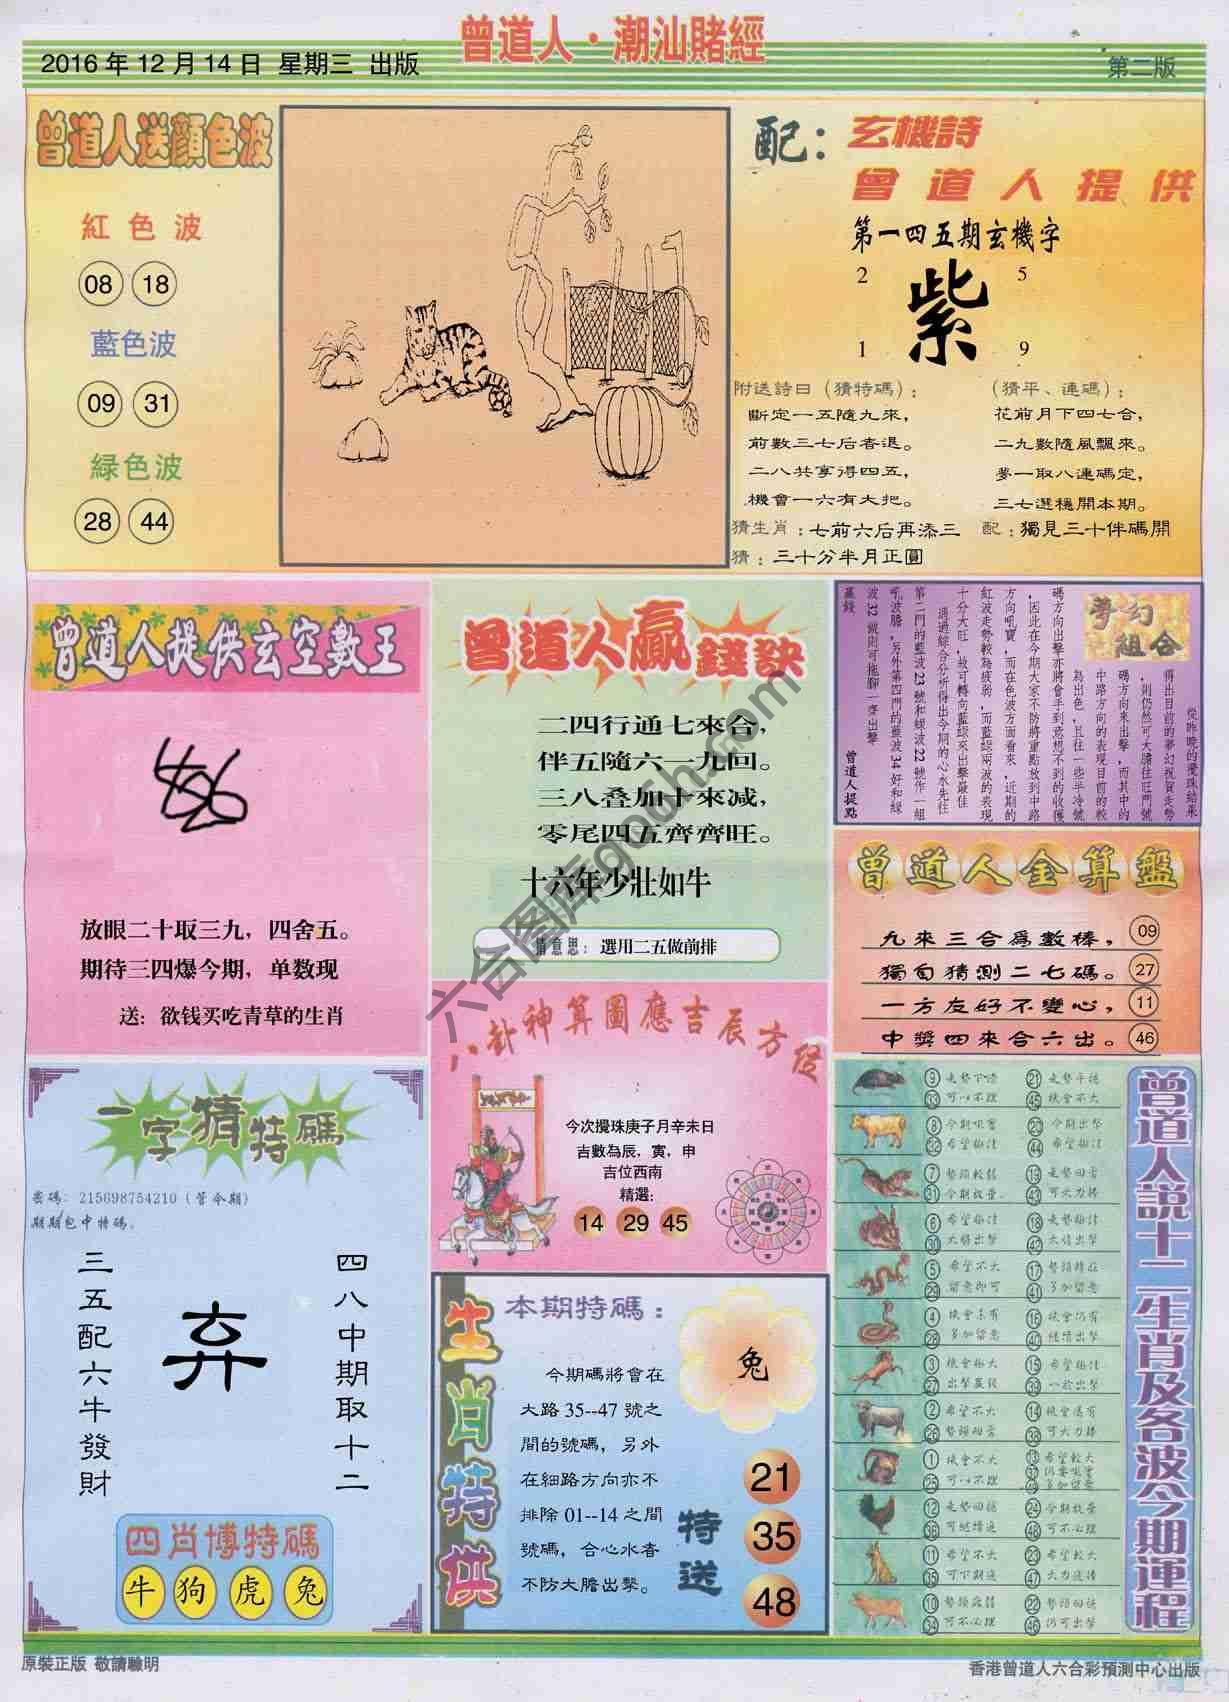 曾道人·潮汕賭經
2016年12月14日 星期三 出版
第二版
曾道人送顏色波
紅色波
08 18
藍色波
09 31
綠色波
28 44
配：玄機詩
曾道人提供
第一四五期玄機字
2 5
紫
1 9
附送詩曰（猜特碼）：
斷定一五隨九來，
前數三七后者退。
二八共享得四五，
機會一六有大把。
（猜平、連碼）：
花前月下四七合，
二九數隨風飄來。
夢一取八連碼定，
三七選穩開本期。
猜生肖：七前六后再添三
配：獨見三十伴碼開
猜：三十分半月正圓
曾道人提供玄空數王
放眼二十取三九，四舍五。
期待三四爆今期，单数现
送：欲钱买吃青草的生肖
曾道人贏錢訣
二四行通七來合，
伴五隨六一九回。
三八叠加十來减，
零尾四五齊齊旺。
十六年少壯如牛
猜意思：選用二五做前排
夢幻組合
從昨晚的攪珠結果
得出目前的夢幻祝賀走勢
，則仍然可大膽往旺門號
碼方向來出擊，而其中的
中路方向的表現目前的較
為出色，且往一些半冷號
碼方向出擊亦將會手到意想不到的收獲
，因此在今期大家不防將重點放到中路
方向吼寶，而在色波方面看來，近期的
紅波走勢較為疲弱，而藍綠兩波的表現
十分大旺，故可轉向藍綠來出擊最佳
，通過綜合分析得出今期的心水先往
第二門的藍波23號和綠波22號作一組
吼波膽，另外第四門的藍波34好和綠
波32號則可拖腳一齊出擊
贏錢
曾道人提點
曾道人金算盤
九來三合為數棒， 09
獨自猜測二七碼。 27
一方友好不變心， 11
中獎四來合六出。 46
八卦神算圖應吉辰方位
今次攪珠庚子月辛未日
吉數為辰，寅，申
吉位西南
精選：
14 29 45
一字猜特碼
密碼：215698754210（管令期）
期期包中特碼。
三五配六牛發財
弃
四八中期取十二
四肖博特碼
牛 狗 虎 兔
生肖特供
本期特碼：
兔
今期碼將會在
大路35--47號之
間的號碼，另外
在細路方向亦不
排除01--14之間
號碼，合心水者
不防大膽出擊。
特送
21
35
48
曾道人説十二生肖及各波今期運程
原裝正版 敬請驗明
香港曾道人六合彩預測中心出版
六合图库gooh.com